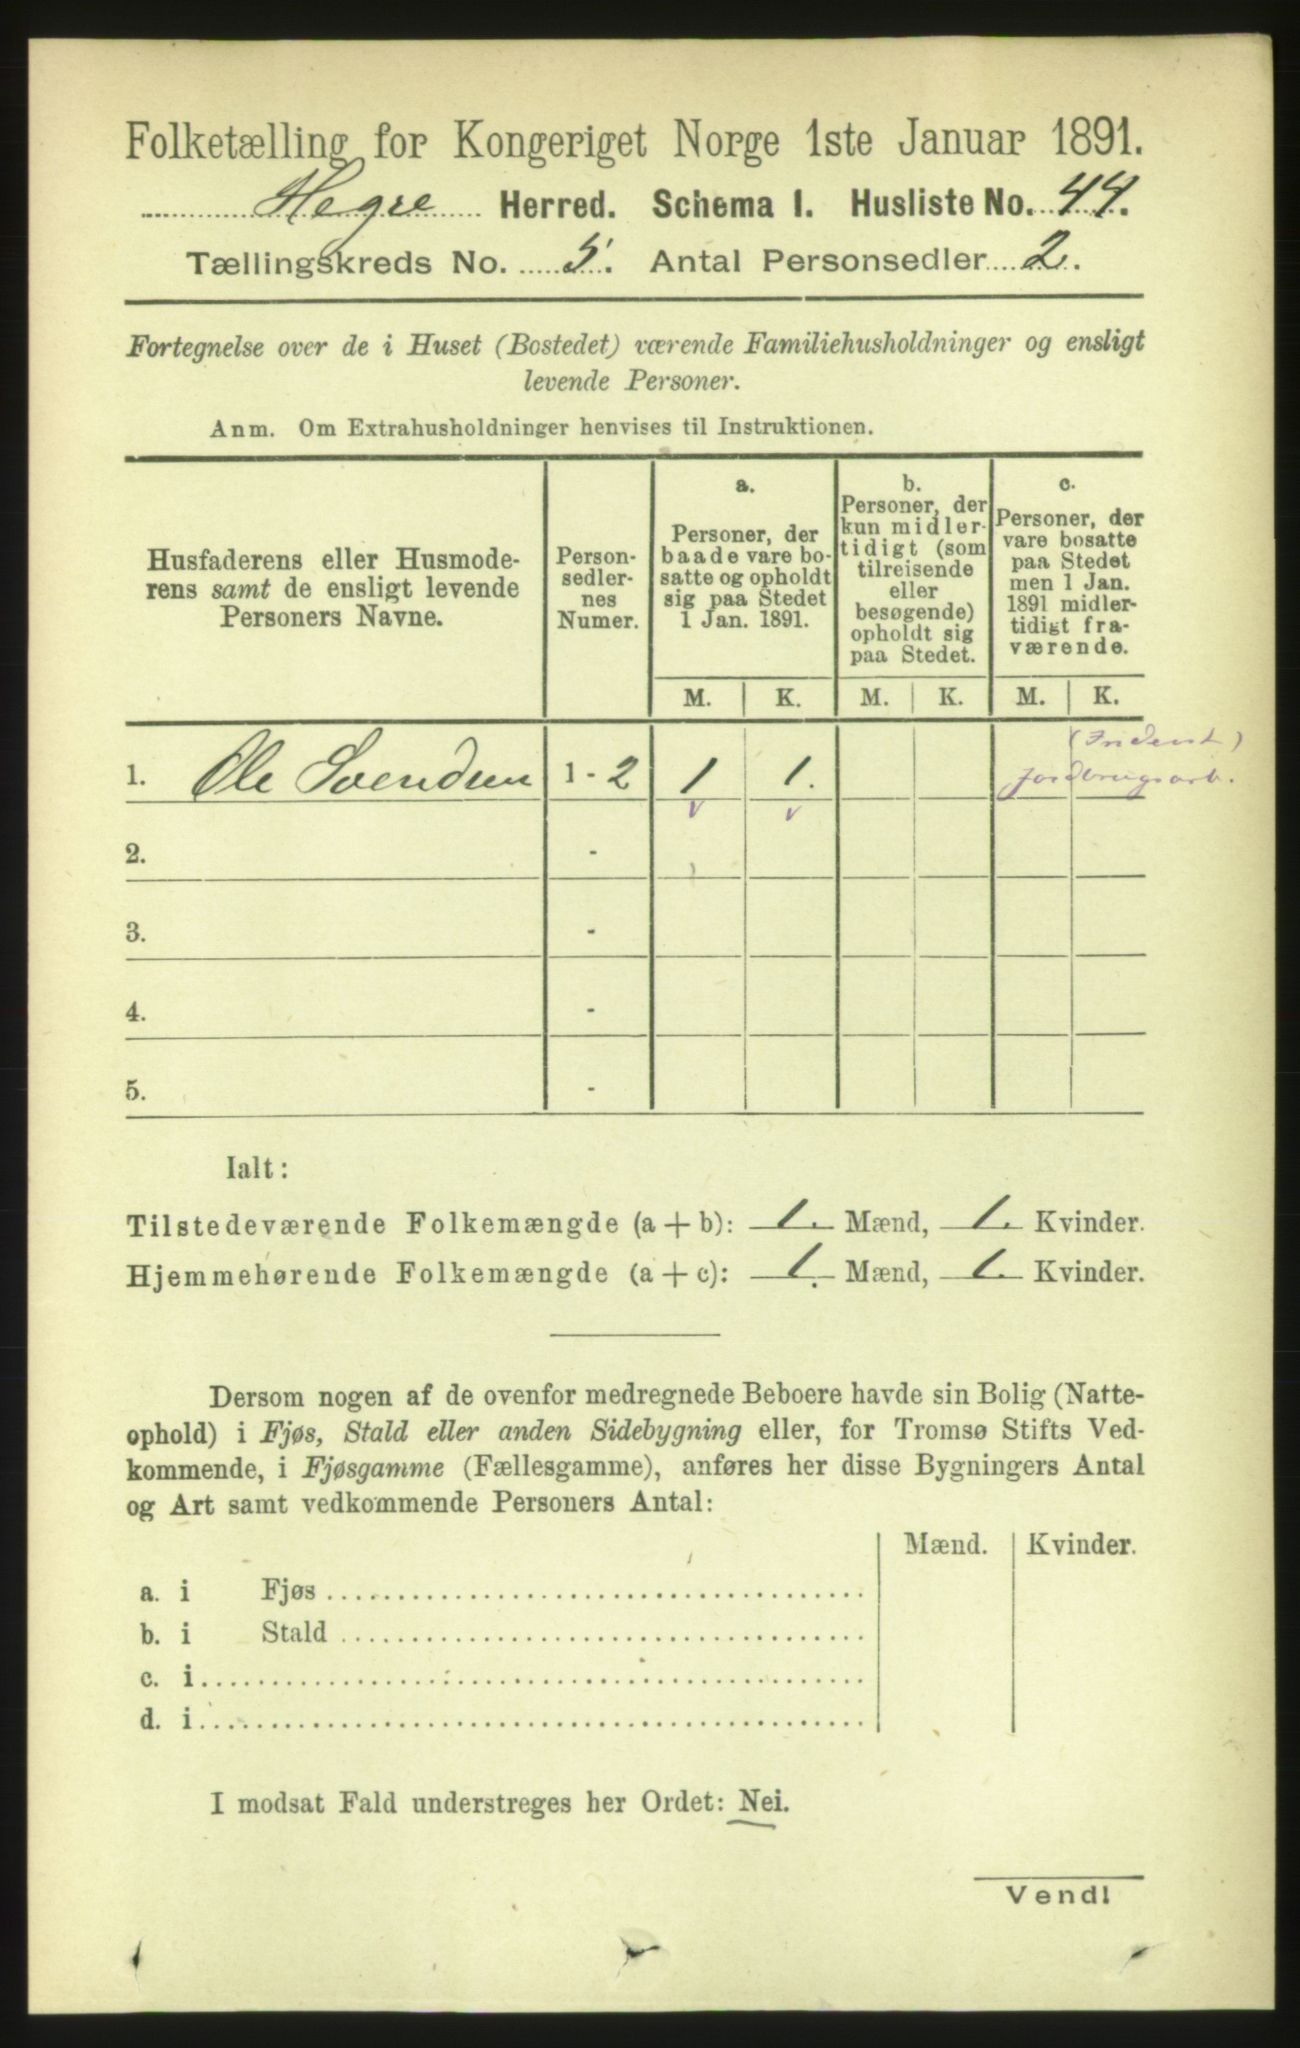 Folketælling for Kongeriget Norge 1ste Januar 1891.
Hegre Herred. Schema 1. Husliste No. 44.
Tællingskreds No. 5. Antal Personsedler 2.
Fortegnelse over de i Huset (Bostedet) værende Familiehusholdninger og ensligt
levende Personer.
Anm. Om Extrahusholdninger henvises til Instruktionen.
Husfaderens eller Husmode-
rens samt de ensligt levende
Personers Navne.
Person-
sedler-
nes
Numer.
a.
Personer, der
baade vare bo-
satte og opholdt
sig paa Stedet
1 Jan. 1891.
b.
Personer, der
kun midler-
tidigt (som
tilreisende
eller
besøgende)
opholdt sig
paa Stedet.
c.
Personer, der
vare bosatte
paa Stedet
men 1 Jan.
1891 midler-
tidigt fra-
værende.
M. K. M. K. M. K.
1. Ole Svendsen 1 - 2 1 1.
jordbrugsarb.
2. -
3. -
4. -
5. -
Ialt:
Tilstedeværende Folkemængde (a + b): 1. Mænd, 1. Kvinder.
Hjemmehørende Folkemængde (a + c): 1. Mænd, 1. Kvinder.
Dersom nogen af de ovenfor medregnede Beboere havde sin Bolig (Natte-
ophold) i Fjøs, Stald eller anden Sidebygning eller, for Tromsø Stifts Ved-
kommende, i Fjøsgamme (Fællesgamme), anføres her disse Bygningers Antal
og Art samt vedkommende Personers Antal:
Mænd. Kvinder.
a. i Fjøs
b. i Stald
c. i
d. i
I modsat Fald understreges her Ordet: Nei.
Vend!